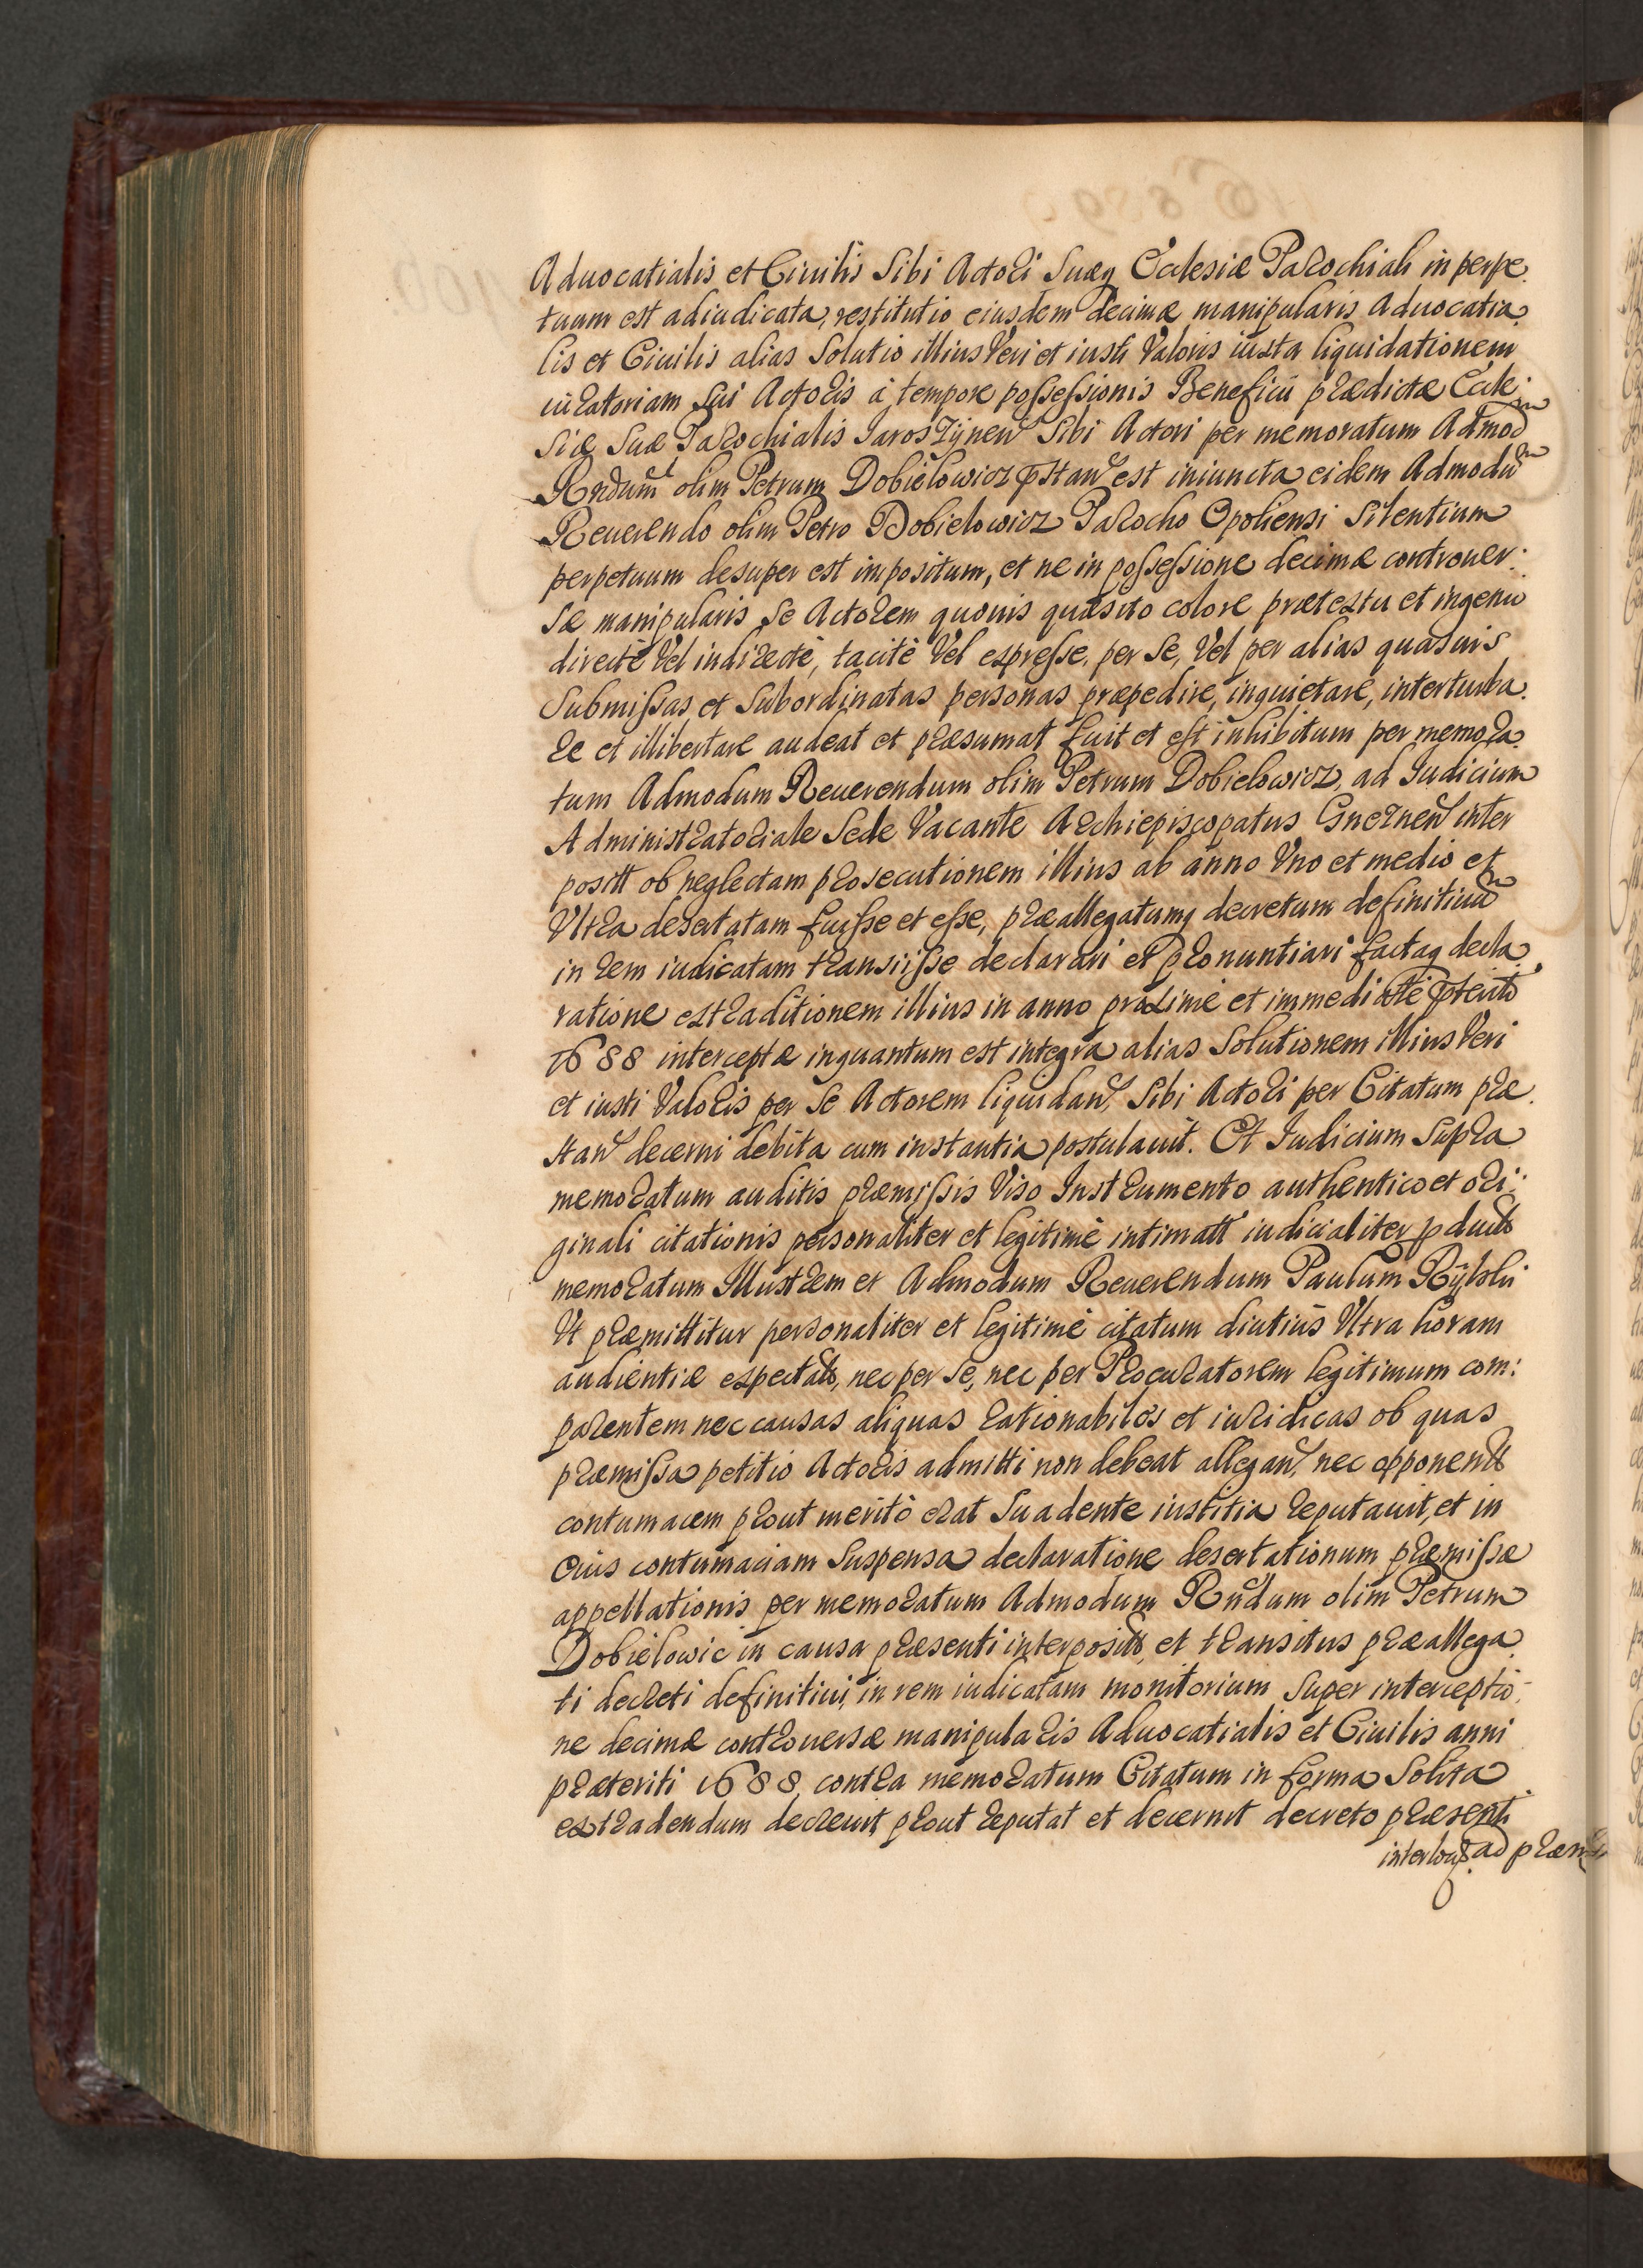 Aduocatialis et Ciuilis Sibi Actori Suæq Ecclesiæ Parochiali in perpe:
tuum est adiudicata, restitutio eiusdem Decimæ manipularis Aduocatia:
lis et Ciuilis alias Solutio illius Veri et iusti Valoris iuxta liquidationem
iuratoriam Sui Actoris à tempore possessionis Beneficii prædictæ Eccle:
siæ Suæ Parochialis Jaroszÿnen Sibi Actori per memoratum Admodum
Rndum olim Petrum Dobielowicz pstan est iniuncta eidem Admodum
Reuerendo olim Petro Dobielowicz Parocho Opoliensi Silentium
perpetuum desuper est impositum, et ne in possessione decimæ controuer:
sæ manipularis Se Actorem quouis quæsito colore prætextu et ingenio
directè Vel indirectè, tacitè Vel expresse, per Se, Vel per alias quasuis
Submissas et Subordinatas personas præpedire, inquietare, interturba:
re et illibertare audeat et præsumat fuit et est inhibitum per memora:
tum Admodum Reuerendum olim Petrum Dobielowicz, ad Iudicium
Administratoriale Sede Vacante Archiepiscopatus Gneznen inter
positt ob neglectam prosecutionem illius ab anno Vno et medio et
Vltra desertatam fuisse et esse, præallegatumq decretum definitiuum
in rem iudicatam transiisse declarari et pronuntiari factaq decla:
ratione extraditionem illius in anno proximè et immediatè pterito
1688 interceptæ inquantum est integra alias Solutionem illius Veri
et iusti Valoris per Se Actorem liquidan, Sibi Actori per Citatum præ:
stan decerni debita cum instantia postulauit. Et Iudicium Supra
memoratum auditis præmissis Viso Instrumento authentico et ori:
ginali citationis personaliter et legitimè intimatt iudicialiter pduct
memoratum Illustrem et Admodum Reuerendum Paulum Rÿlski
Vt præmittitur personaliter et legitimè citatum diutiùs Vltra horam
audientiæ expectatt, nec per Se, nec per Procuratorem legitimum com:
parentem nec causas aliquas rationabiles et iuridicas ob quas
præmissa petitio Actoris admitti non debeat allegan, nec opponentt
contumacem prout meritò erat Suadente iustitia reputauit, et in
eius contumaciam Suspensa declaratione desertationum præmissæ
appellationis per memoratum Admodum Rndum olim Petrum
Dobielowic in causa præsenti interpositt, et transitus præallega:
ti decreti definitiui, in rem iudicatam monitorium Super interceptio:
ne decimæ controuersæ manipularis Aduocatialis et Ciuilis anni
præteriti 1688, contra memoratum Citatum in forma Solita
extradendum decreuit, prout reputat et decernit decreto præsenti
interloq. ad præm